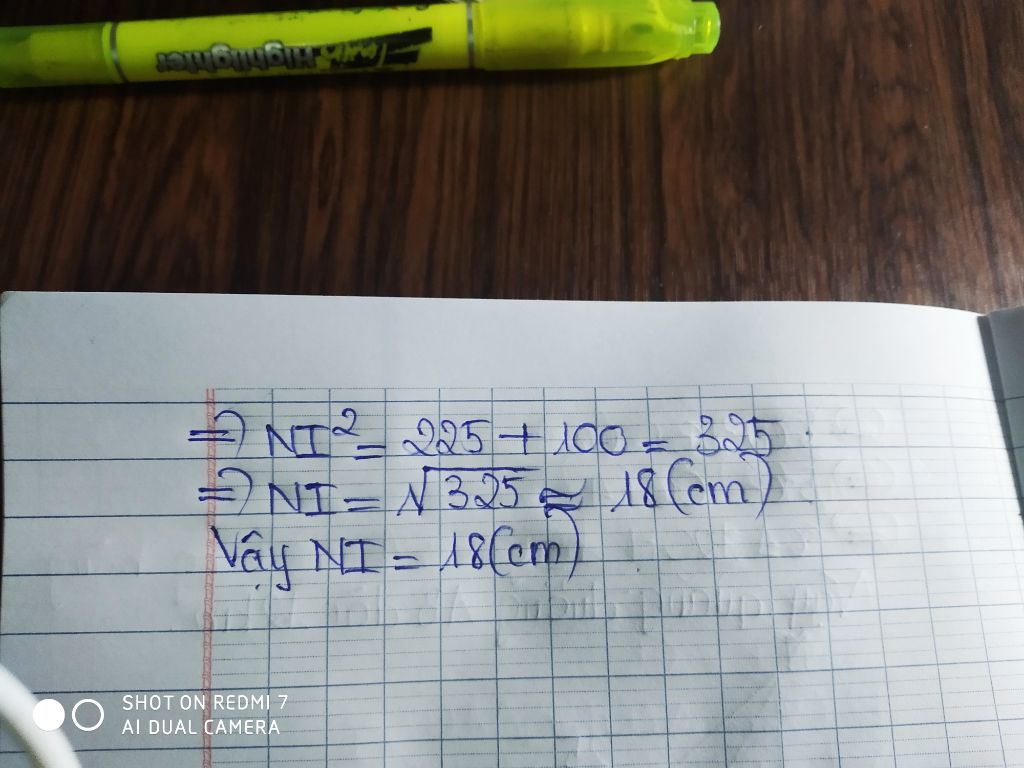 Highlighter
=> NI² = 225 + 100 = 325
=> NI = √325 ≈ 18 (cm)
Vậy NI = 18 (cm)
SHOT ON REDMI 7
AI DUAL CAMERA